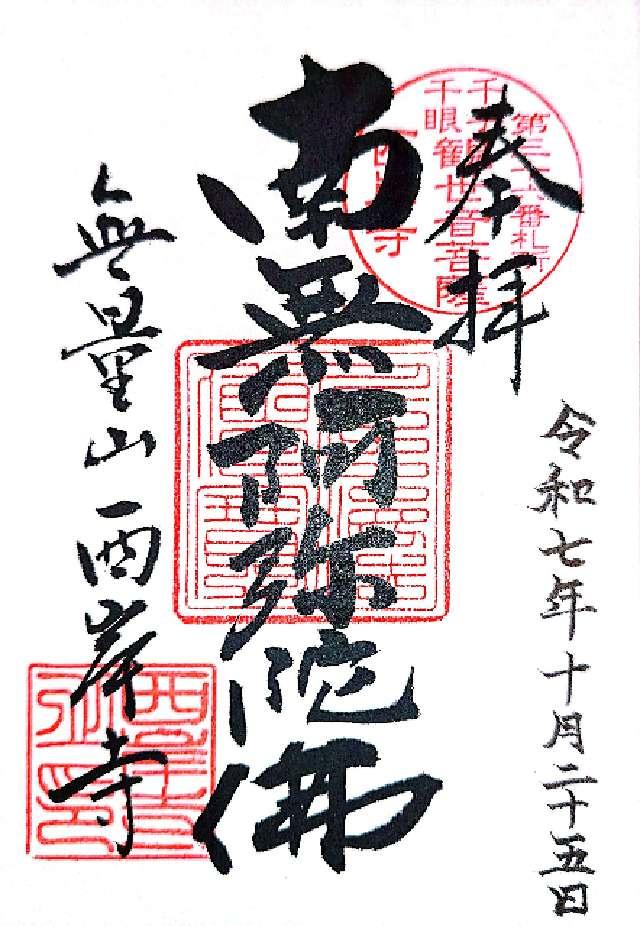 奉拝
第三十六番札所
千手
千眼観世音菩薩
西岸寺
令和七年十月二十五日
南無阿弥陀佛
無量山西岸寺